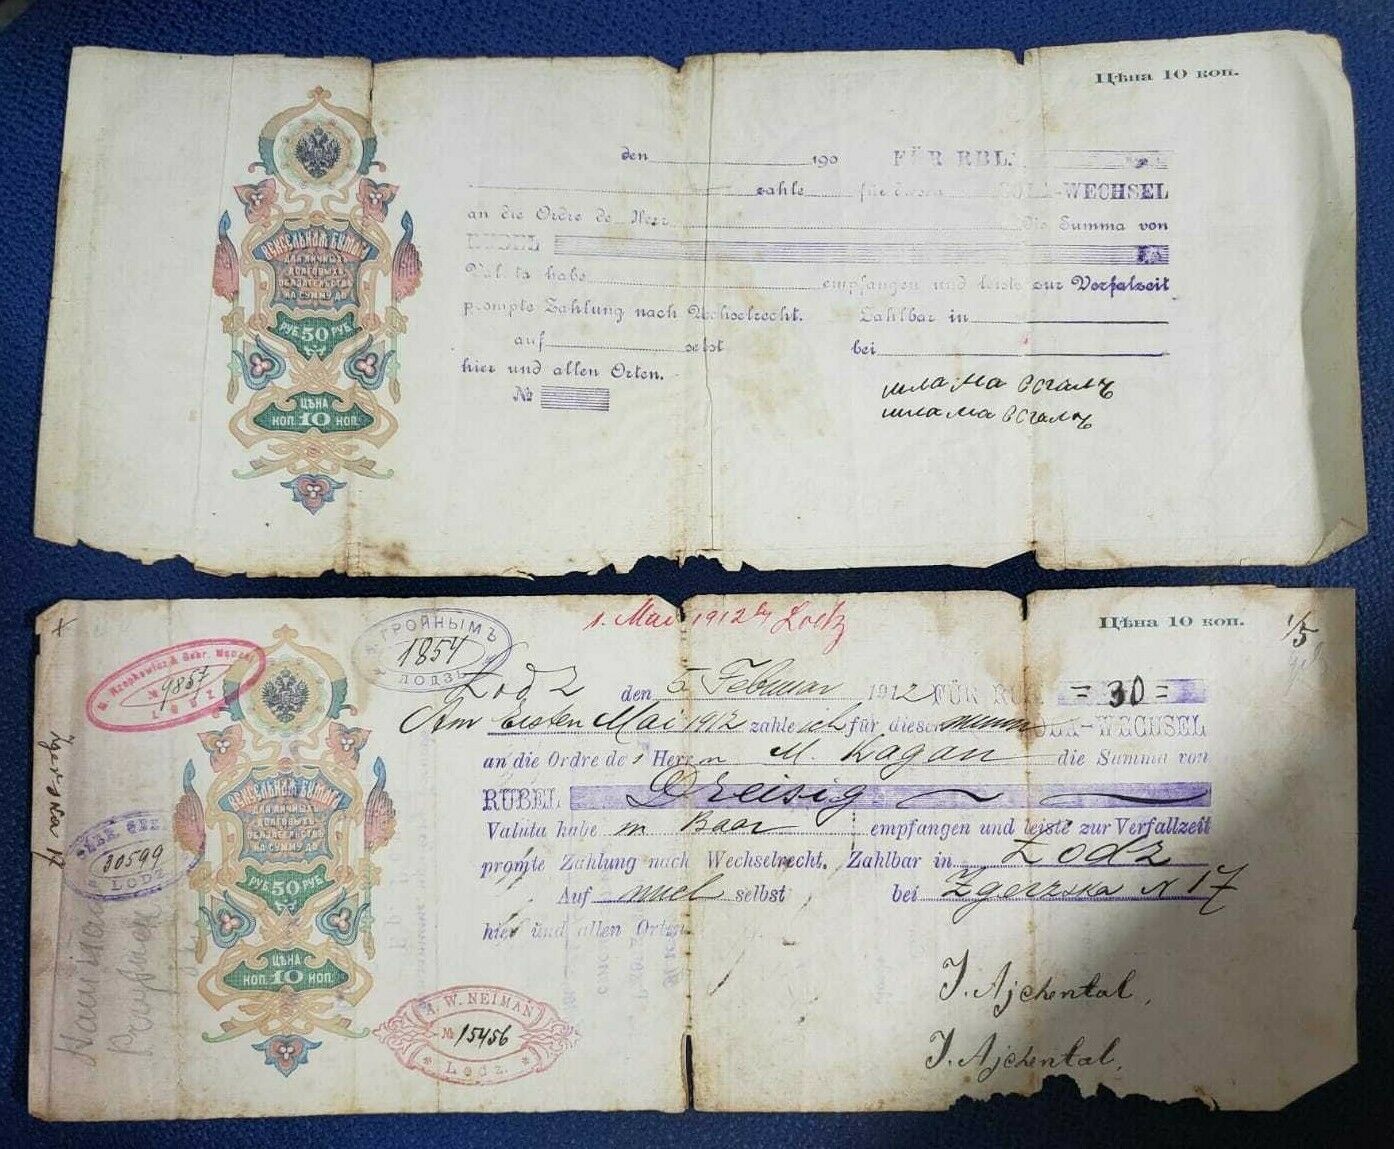 Цѣна 10 коп.
den 190 FÜR RBL.
zahle für diesen SOLA-WECHSEL
an die Ordre de Herr die Summa von
RUBEL
Valuta habe empfangen und leiste zur Verfalzeit
prompte Zahlung nach Wechselrecht. Zahlbar in
auf selbst bei
hier und allen Orten.
№
ВЕКСЕЛЬНАЯ БУМАГА
ДЛЯ ЛИЧНЫХЪ
ДОЛГОВЫХЪ
ОБЯЗАТЕЛЬСТВЪ
НА СУММУ ДО
РУБ. 50 РУБ.
ЦѢНА
КОП. 10 КОП.
шлама
шлама
1. Mai 1912 Lodz
Цѣна 10 коп.
1/5
ГРОЙНЫМЪ
1854
ЛОДЗЬ
№ 9857
LODZ
Lodz den 5 Februar 1912 FÜR RUB. =30=
Am Ersten Mai 1912 zahle ich für diesen SOLA-WECHSEL
an die Ordre des Herrn M. Kagan die Summa von
RUBEL Dreisig
Valuta habe in Baar empfangen und leiste zur Verfallzeit
promte Zahlung nach Wechselrecht. Zahlbar in Lodz
Auf mich selbst bei Zgerzska N 17
hier und allen Orten
J. Ajchental,
J. Ajchental,
ВЕКСЕЛЬНАЯ БУМАГА
ДЛЯ ЛИЧНЫХЪ
ДОЛГОВЫХЪ
ОБЯЗАТЕЛЬСТВЪ
НА СУММУ ДО
РУБ. 50 РУБ.
ЦѢНА
КОП. 10 КОП.
30599
LODZ
Zgerzska 17
W. NEIMAN
№ 15456
Lodz.